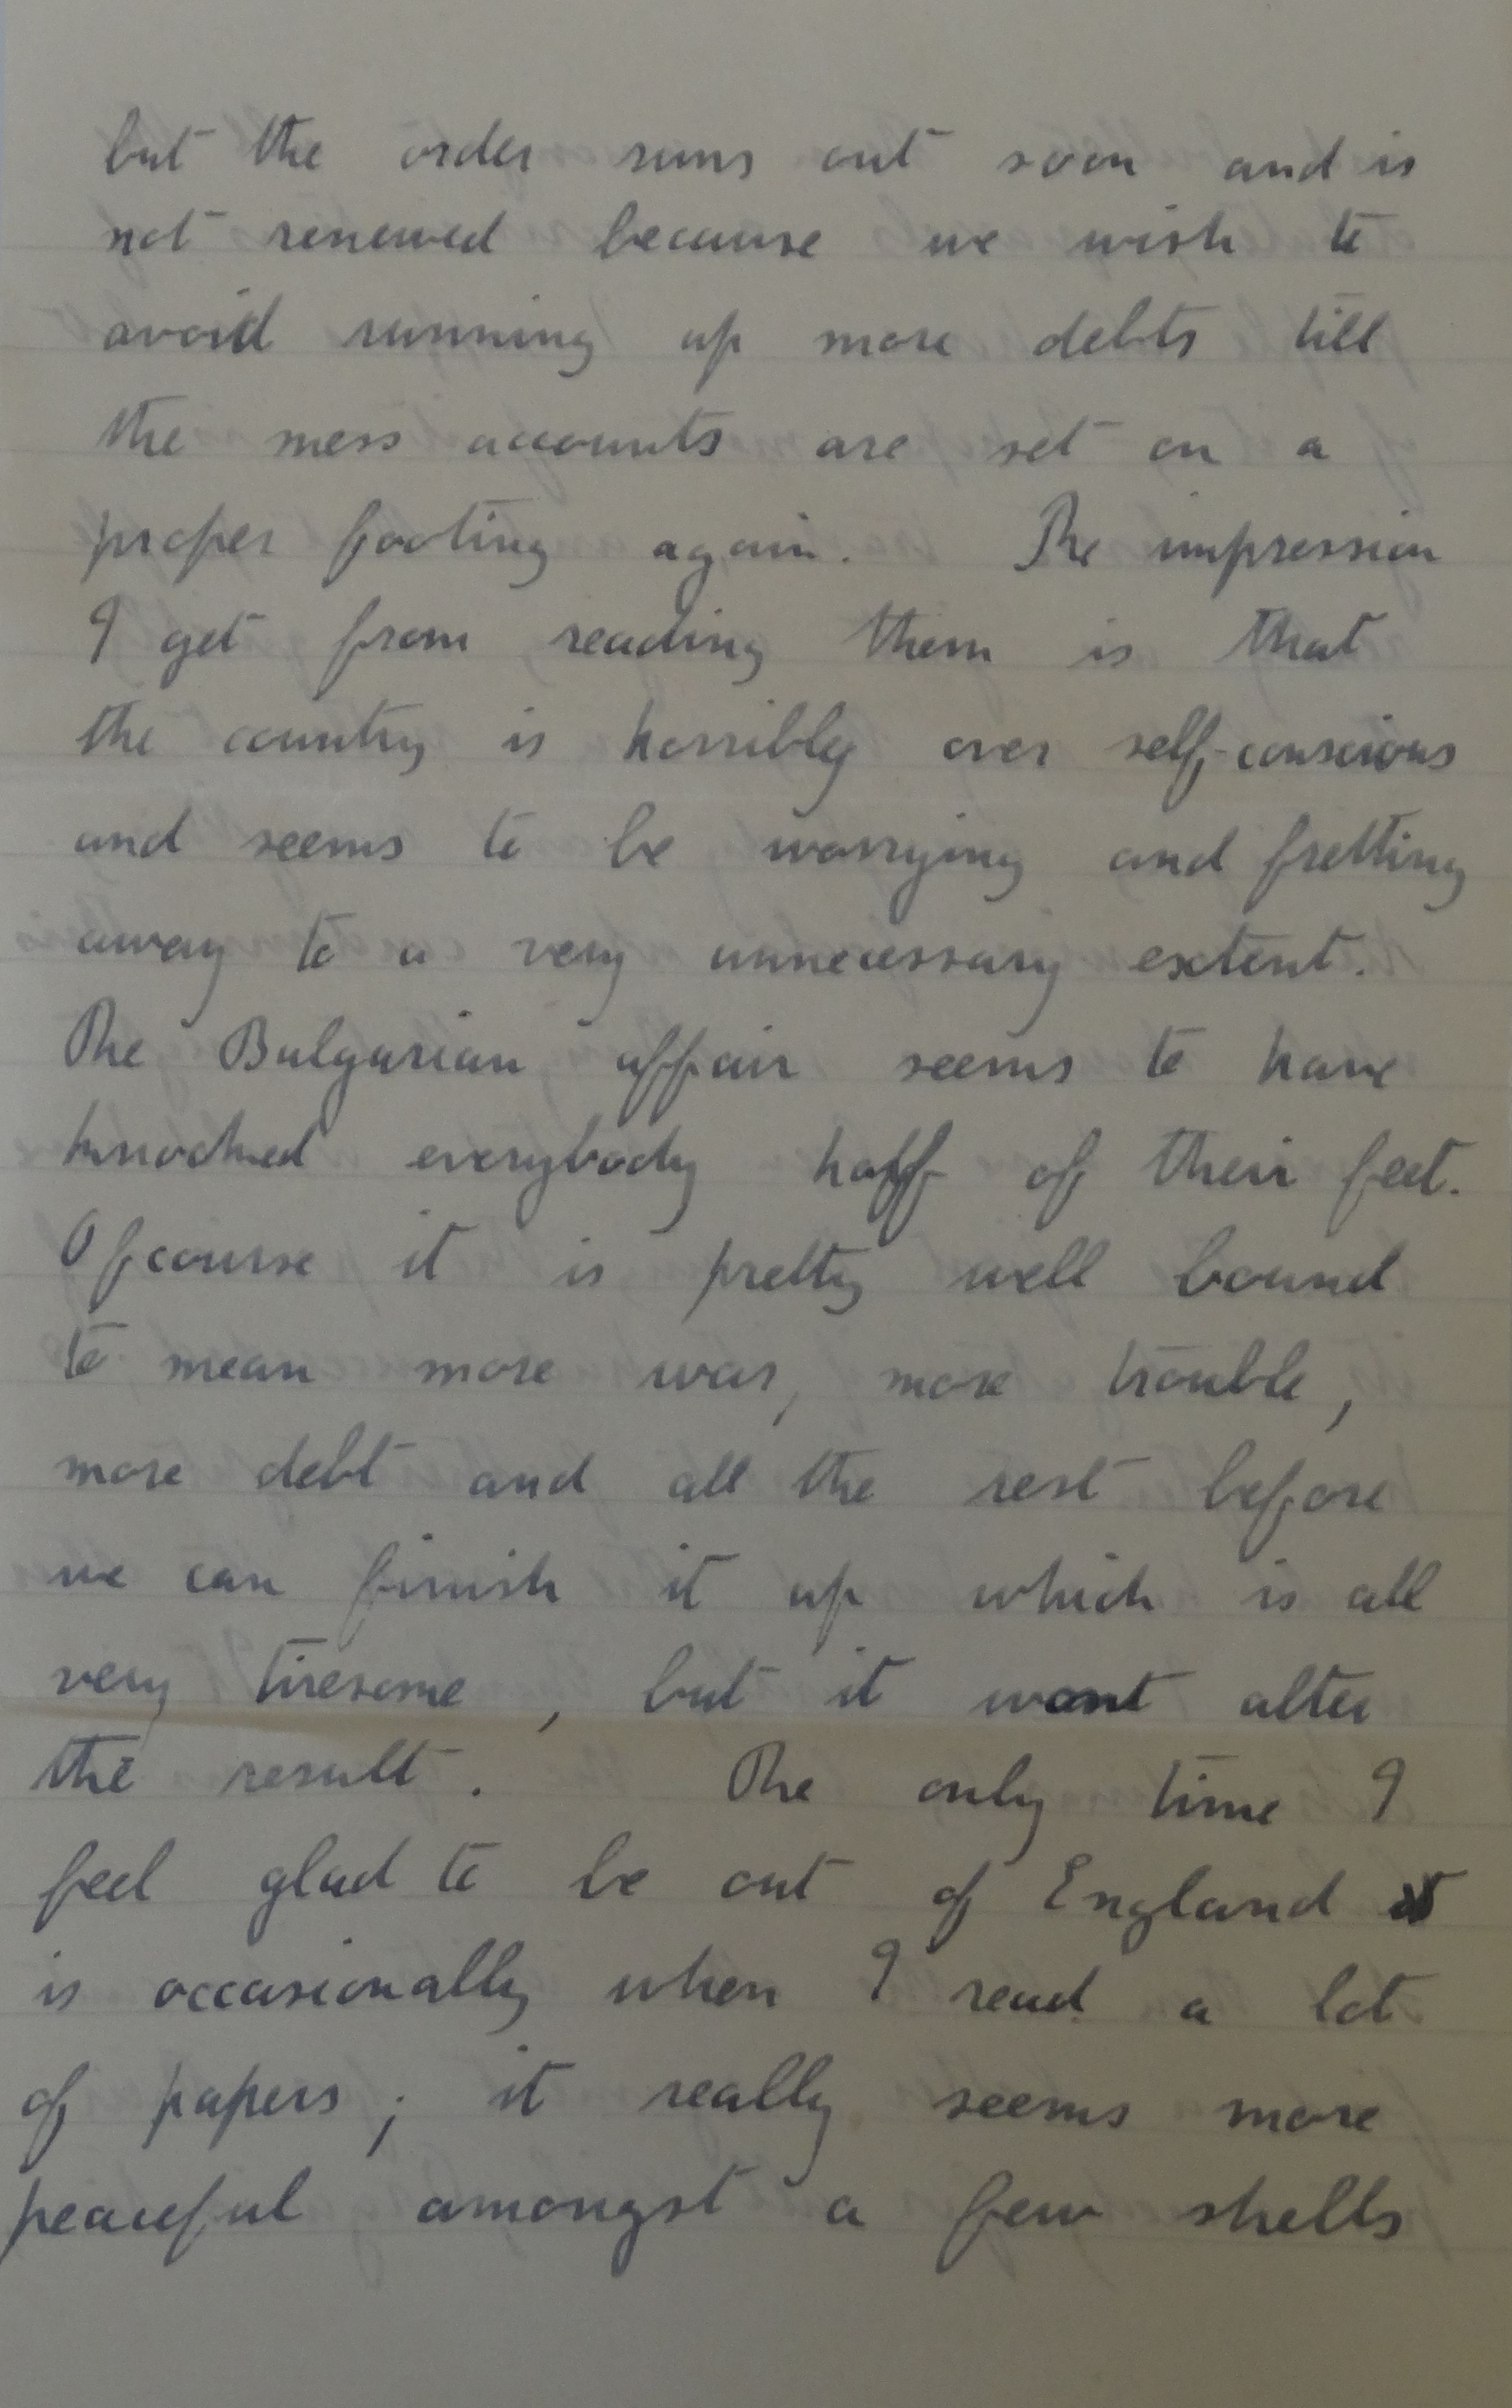 but the order runs out soon and is
not renewed because we wish to
avoid running up more debts till
the mess accounts are set on a
proper footing again. The impression
I get from reading them is that
the country is horribly over self-conscious
and seems to be worrying and fretting
away to a very unnecessary extent.
The Bulgarian affair seems to have
knocked everybody half of their feet.
Of course it is pretty well bound
to mean more war, more trouble,
more debt and all the rest before
we can finish it up which is all
very tiresome, but it wont alter
the result. The only time I
feel glad to be out of England
is occasionally when I read a lot
of papers; it really seems more
peaceful amongst a few shells